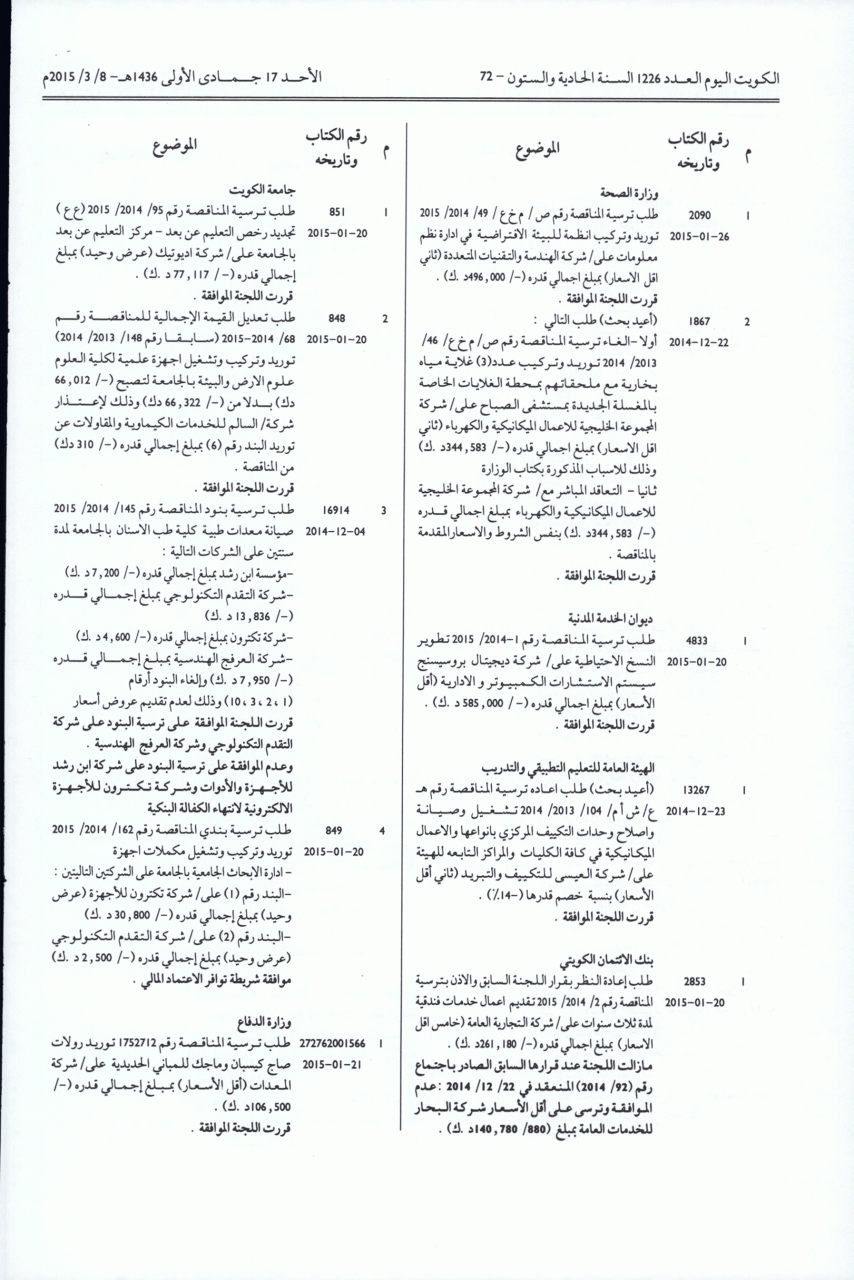 الكويت اليوم العدد 1226 السنة الحادية والستون - 72
الأحد 17 جمادى الأولى 1436هـ - 8/ 3/ 2015م
م
رقم الكتاب وتاريخه
الموضوع
وزارة الصحة
1
2090
طلب ترسية المناقصة رقم ص/ م خ ع/ 49/ 2014/ 2015
2015-01-26
توريد وتركيب انظمة للبيئة الافتراضية في ادارة نظم
معلومات على/ شركة الهندسة والتقنيات المتعددة (ثاني
اقل الاسعار) بمبلغ اجمالي قدره (-/ 496,000د .ك) .
قررت اللجنة الموافقة .
2
1867
(أعيد بحث) طلب التالي :
2014-12-22
أولا - الغاء ترسية المناقصة رقم ص/ م خ ع/ 46/
2013/ 2014 توريد وتركيب عدد(3) غلاية مياه
بخارية مع ملحقاتهم بمحطة الغلايات الخاصة
بالمغسلة الجديدة بمستشفى الصباح على/ شركة
المجموعة الخليجية للاعمال الميكانيكية والكهرباء (ثاني
اقل الاسعار) بمبلغ اجمالي قدره (-/ 344,583د. ك)
وذلك للاسباب المذكورة بكتاب الوزارة
ثانيا - التعاقد المباشر مع/ شركة المجموعة الخليجية
للاعمال الميكانيكية والكهرباء بمبلغ اجمالي قدره
(-/ 344,583د. ك) بنفس الشروط والاسعار المقدمة
بالمناقصة .
قررت اللجنة الموافقة .
ديوان الخدمة المدنية
1
4833
طلب ترسية المناقصة رقم 1-2014/ 2015 تطوير
2015-01-20
النسخ الاحتياطية على/ شركة ديجيتال بروسيسنج
سيستم الاستشارات الكمبيوتر و الادارية (أقل
الأسعار) بمبلغ اجمالي قدره (-/ 585,000 د .ك) .
قررت اللجنة الموافقة .
الهيئة العامة للتعليم التطبيقي والتدريب
1
13267
(أعيد بحث) طلب اعاده ترسية المناقصة رقم هـ
2014-12-23
ع/ ش أ م/ 104/ 2013/ 2014 تشغيل وصيانة
واصلاح وحدات التكييف المركزي بانواعها والاعمال
الميكانيكية في كافة الكليات والمراكز التابعه للهيئة
على/ شركة العيسى للتكييف والتبريد (ثاني أقل
الأسعار) بنسبة خصم قدرها (-14٪) .
قررت اللجنة الموافقة .
بنك الائتمان الكويتي
1
2853
طلب إعادة النظر بقرار اللجنة السابق والاذن بترسية
2015-01-20
المناقصة رقم 2/ 2014/ 2015 تقديم اعمال خدمات فندقية
لمدة ثلاث سنوات على/ شركة التجارية العامة (خامس اقل
الاسعار) بمبلغ اجمالي قدره (-/ 261,180د .ك) .
مازالت اللجنة عند قرارها السابق الصادر باجتماع
رقم (92/ 2014) المنعقد في 22/ 12/ 2014 : عدم
الموافقة وترسى على أقل الأسعار شركة البحار
للخدمات العامة بمبلغ (880/ 140,780د .ك) .
م
رقم الكتاب وتاريخه
الموضوع
جامعة الكويت
1
851
طلب ترسية المناقصة رقم 95/ 2014/ 2015 (ع ع)
2015-01-20
تجديد رخص التعليم عن بعد - مركز التعليم عن بعد
بالجامعة على/ شركة اديوتيك (عرض وحيد) بمبلغ
إجمالي قدره (-/ 77,117 د .ك) .
قررت اللجنة الموافقة .
2
848
طلب تعديل القيمة الإجمالية للمناقصة رقم
2015-01-20
68/ 2014-2015 (سابقا رقم 148/ 2013/ 2014)
توريد وتركيب وتشغيل اجهزة علمية لكلية العلوم
علوم الارض والبيئة بالجامعة لتصبح (-/ 66,012
دك) بدلا من (-/ 66,322 دك) وذلك لإعتذار
شركة/ السالم للخدمات الكيماوية والمقاولات عن
توريد البند رقم (6) بمبلغ إجمالي قدره (-/ 310 دك)
من المناقصة .
قررت اللجنة الموافقة .
3
16914
طلب ترسية بنود المناقصة رقم 145/ 2014/ 2015
2014-12-04
صيانة معدات طبية كلية طب الاسنان بالجامعة لمدة
سنتين على الشركات التالية :
-مؤسسة ابن رشد بمبلغ إجمالي قدره (-/ 7,200 د .ك)
-شركة التقدم التكنولوجي بمبلغ إجمالي قدره
(-/ 13,836 د .ك)
-شركة تكترون بمبلغ إجمالي قدره (-/ 4,600 د .ك)
-شركة العرفج الهندسية بمبلغ إجمالي قدره
(-/ 7,950 د .ك) وإلغاء البنود أرقام
(1 ،2 ،3 ،10) وذلك لعدم تقديم عروض أسعار
قررت اللجنة الموافقة على ترسية البنود على شركة
التقدم التكنولوجي وشركة العرفج الهندسية .
وعدم الموافقة على ترسية البنود على شركة ابن رشد
للأجهزة والأدوات وشركة تكترون للأجهزة
الالكترونية لانتهاء الكفالة البنكية
4
849
طلب ترسية بندي المناقصة رقم 162/ 2014/ 2015
2015-01-20
توريد وتركيب وتشغيل مكملات اجهزة
- ادارة الابحاث الجامعية بالجامعة على الشركتين التاليتين :
-البند رقم (1) على/ شركة تكترون للأجهزة (عرض
وحيد) بمبلغ إجمالي قدره (-/ 30,800 د .ك)
-البند رقم (2) على/ شركة التقدم التكنولوجي
(عرض وحيد) بمبلغ إجمالي قدره (-/ 2,500 د .ك)
موافقة شريطة توافر الاعتماد المالي .
وزارة الدفاع
1
272762001566
طلب ترسية المناقصة رقم 1752712 توريد رولات
2015-01-21
صاج كيسبان وماجك للمباني الحديدية على/ شركة
المعدات (أقل الأسعار) بمبلغ إجمالي قدره (-/
106,500د .ك) .
قررت اللجنة الموافقة .